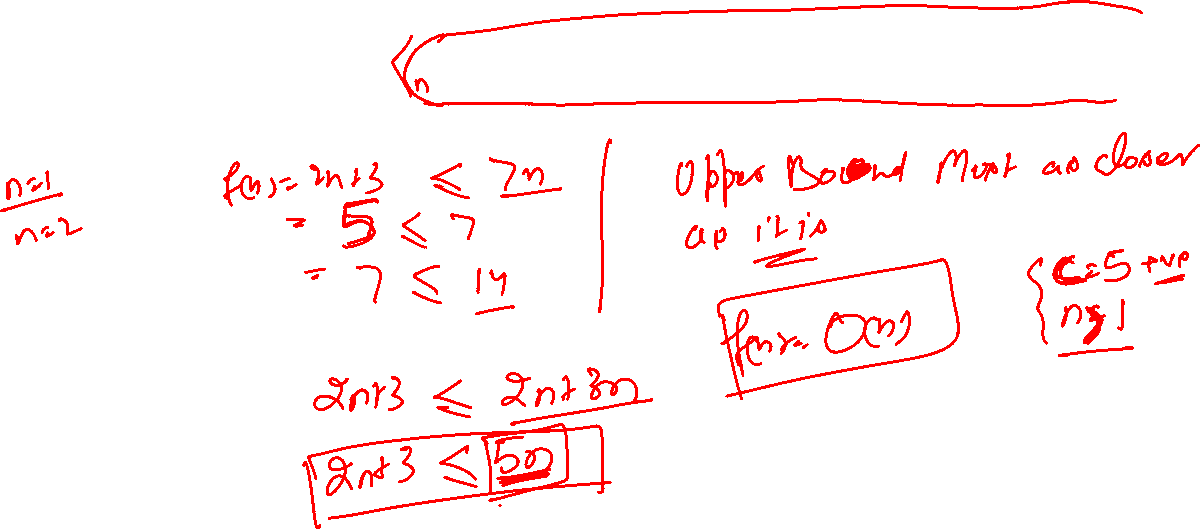 n
n=1
n=2
f(n) = 2n+3 ≤ 7n
= 5 ≤ 7
= 7 ≤ 14
2n+3 ≤ 2n+3n
2n+3 ≤ 5n
Upper Bound Must as closer
as it is
f(n) = O(n)
c=5 +ve
n≥1